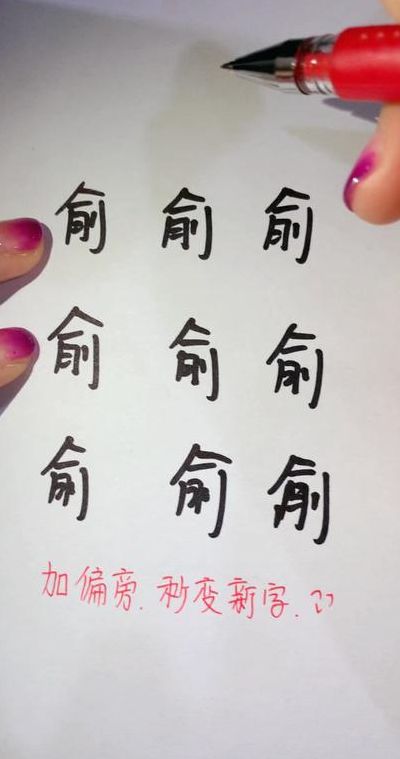 俞 俞 俞
俞 俞 俞
俞 俞 俞
加偏旁.秒变新字.